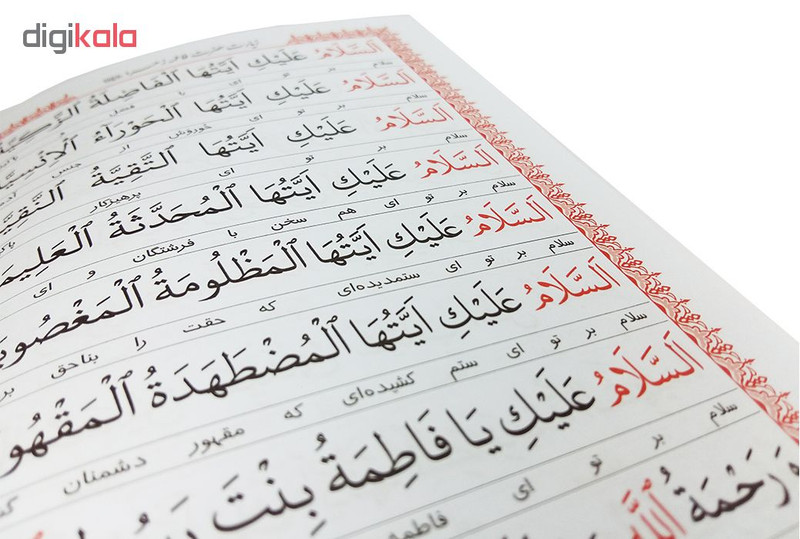 digikala
اَلسَّلَامُ عَلَيْكِ اَيَّتُهَا الْفَاضِلَةُ الزَّكِيَّةُ
اَلسَّلَامُ عَلَيْكِ اَيَّتُهَا الْحَوْرَاءُ الْاِنْسِيَّةُ
سلام بر تو ای حوروش از جنس
اَلسَّلَامُ عَلَيْكِ اَيَّتُهَا التَّقِيَّةُ النَّقِيَّةُ
سلام بر تو ای پرهیزکار
اَلسَّلَامُ عَلَيْكِ اَيَّتُهَا الْمُحَدَّثَةُ الْعَلِيمَ
سلام بر تو ای هم سخن با فرشتگان و ای
اَلسَّلَامُ عَلَيْكِ اَيَّتُهَا الْمَظْلُومَةُ الْمَغْصُوبَ
سلام بر تو ای ستمدیده‌ای که حقت را بناحق بر
اَلسَّلَامُ عَلَيْكِ اَيَّتُهَا الْمُضْطَهَدَةُ الْمَقْهُو
سلام بر تو ای ستم کشیده‌ای که مقهور دشمنان
اَلسَّلَامُ عَلَيْكِ يَا فَاطِمَةُ بِنْتَ
سلام بر تو ای فاطمه
وَرَحْمَةُ اللّٰهِ